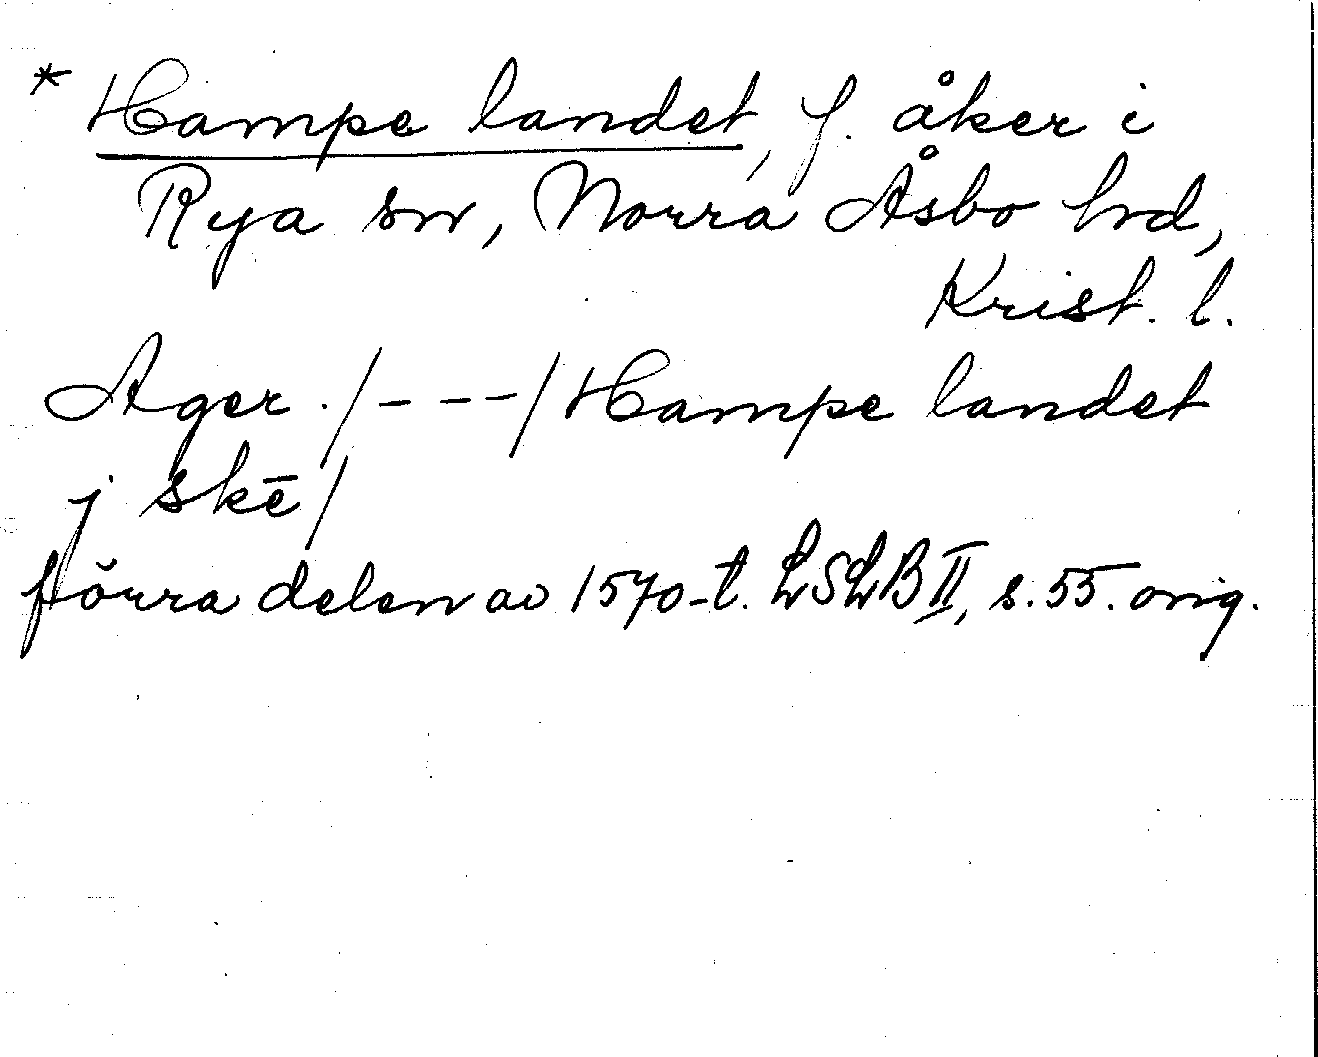 * Hampe landet, f. åker i
Rya sn, Norra Åsbo hrd,
Krist. l.
Ager . /---/ Hampe landet
j skē/
förra delen av 1570-t. LSLB II, s. 55. orig.